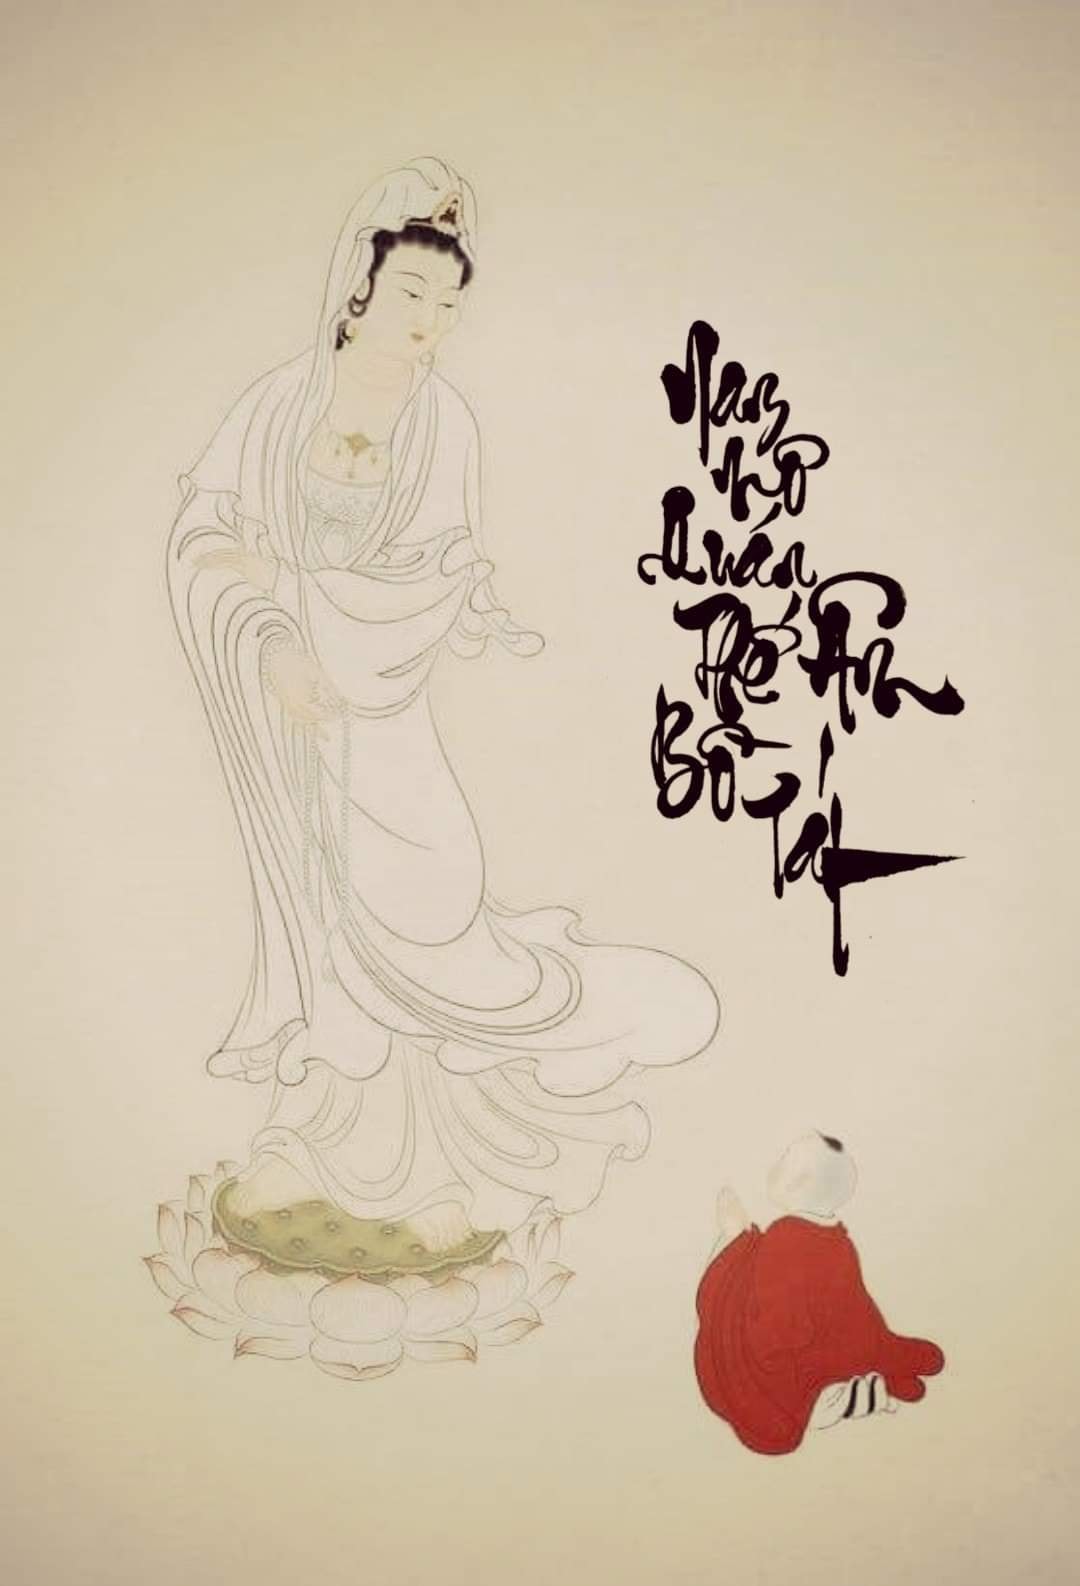 Nam
mô
Quán
Thế Âm
Bồ
Tát